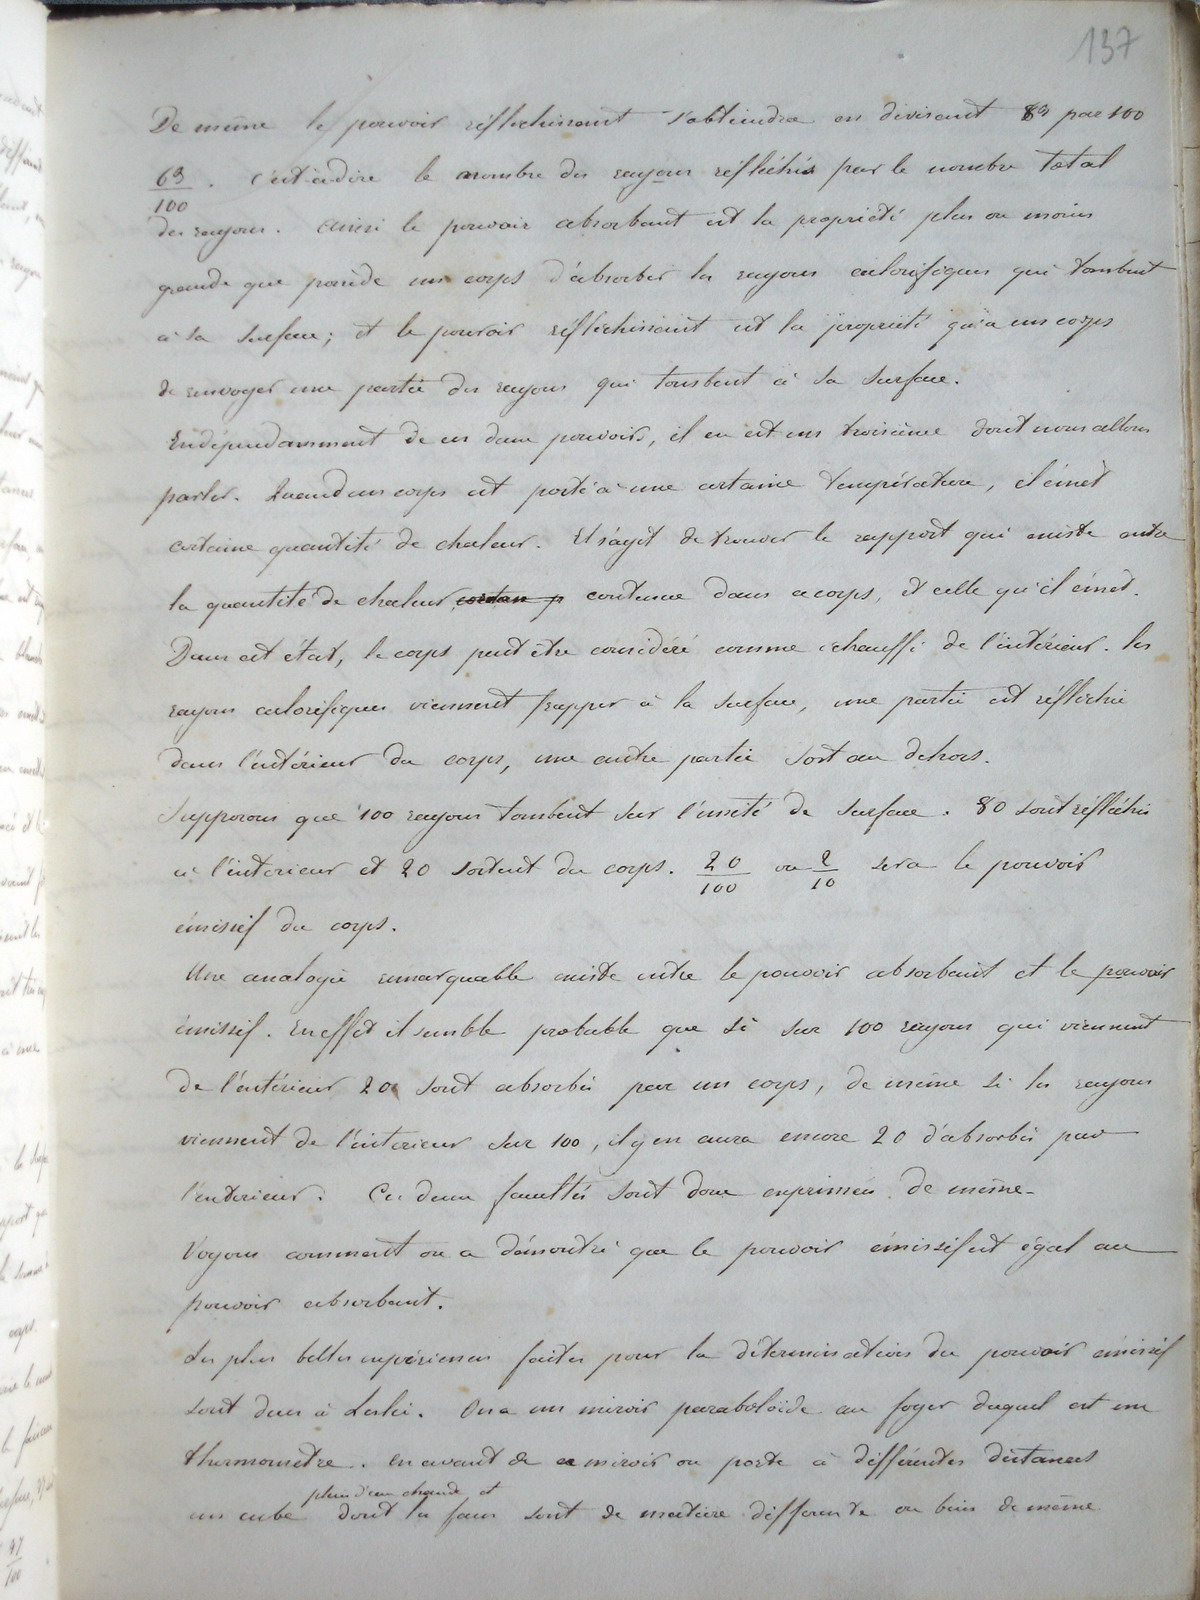 137
De même le pouvoir réfléchissant s'obtiendra en divisant 83 par 100
63/100. C'est à dire le nombre des rayons réfléchis par le nombre total
des rayons. Ainsi le pouvoir absorbant est la propriété plus ou moins
grande que possède un corps d'absorber les rayons calorifiques qui tombent
à sa surface; et le pouvoir réfléchissant est la propriété qu'a un corps
de renvoyer une partie des rayons qui tombent à sa surface.
Indépendamment de ces deux pouvoirs, il en est un troisième dont nous allons
parler. Quand un corps est porté à une certaine température, il émet
certaine quantité de chaleur. Il s'agit de trouver le rapport qui existe entre
la quantité de chaleur contenue dans ce corps, et celle qu'il émet.
Dans cet état, le corps peut être considéré comme échauffé de l'intérieur. les
rayons calorifiques viennent frapper à la surface, une partie est réfléchie
dans l'intérieur du corps, une autre partie sort au dehors.
Supposons que 100 rayons tombent sur l'unité de surface. 80 sont réfléchis
à l'interieur et 20 sortent du corps. 20/100 ou 2/10 sera le pouvoir
émissif du corps.
Une analogie remarquable existe entre le pouvoir absorbant et le pouvoir
émissif. En effet il semble probable que si sur 100 rayons qui viennent
de l'extérieur 20 sont absorbés par un corps, de même si les rayons
viennent de l'interieur sur 100, il y en aura encore 20 d'absorbés par
l'exterieur. Ces deux facultés sont donc exprimées de même.
Voyons comment on a démontré que le pouvoir émissif est égal au
pouvoir absorbant.
Les plus belles expériences faites pour la détermination du pouvoir émissif
sont dues à Leslie. On a un miroir paraboloïde au foyer duquel est un
thermomètre. en avant de ce miroir on porte à différentes distances
plein d'eau chaude et
un cube dont les faces sont de matière différente ou bien de même